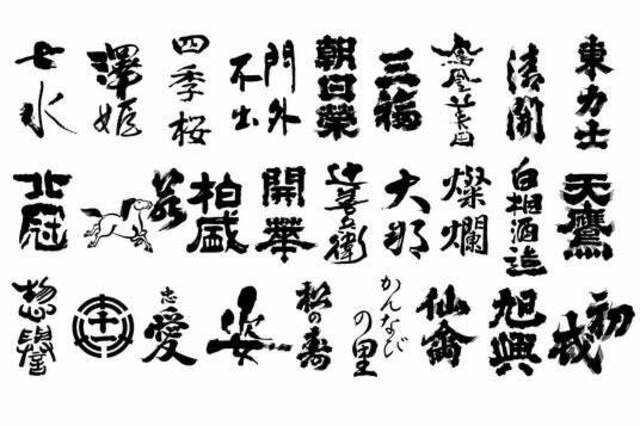 東力士
清開
鳳凰美田
三福
朝日榮
門外
不出
四季桜
澤姫
七水
天鷹
白相酒造
燦爛
大那
辻善兵衛
開華
柏盛
若
北冠
初
旭興
仙禽
かんなび
の里
松の寿
姿
忠愛
十一
惣譽